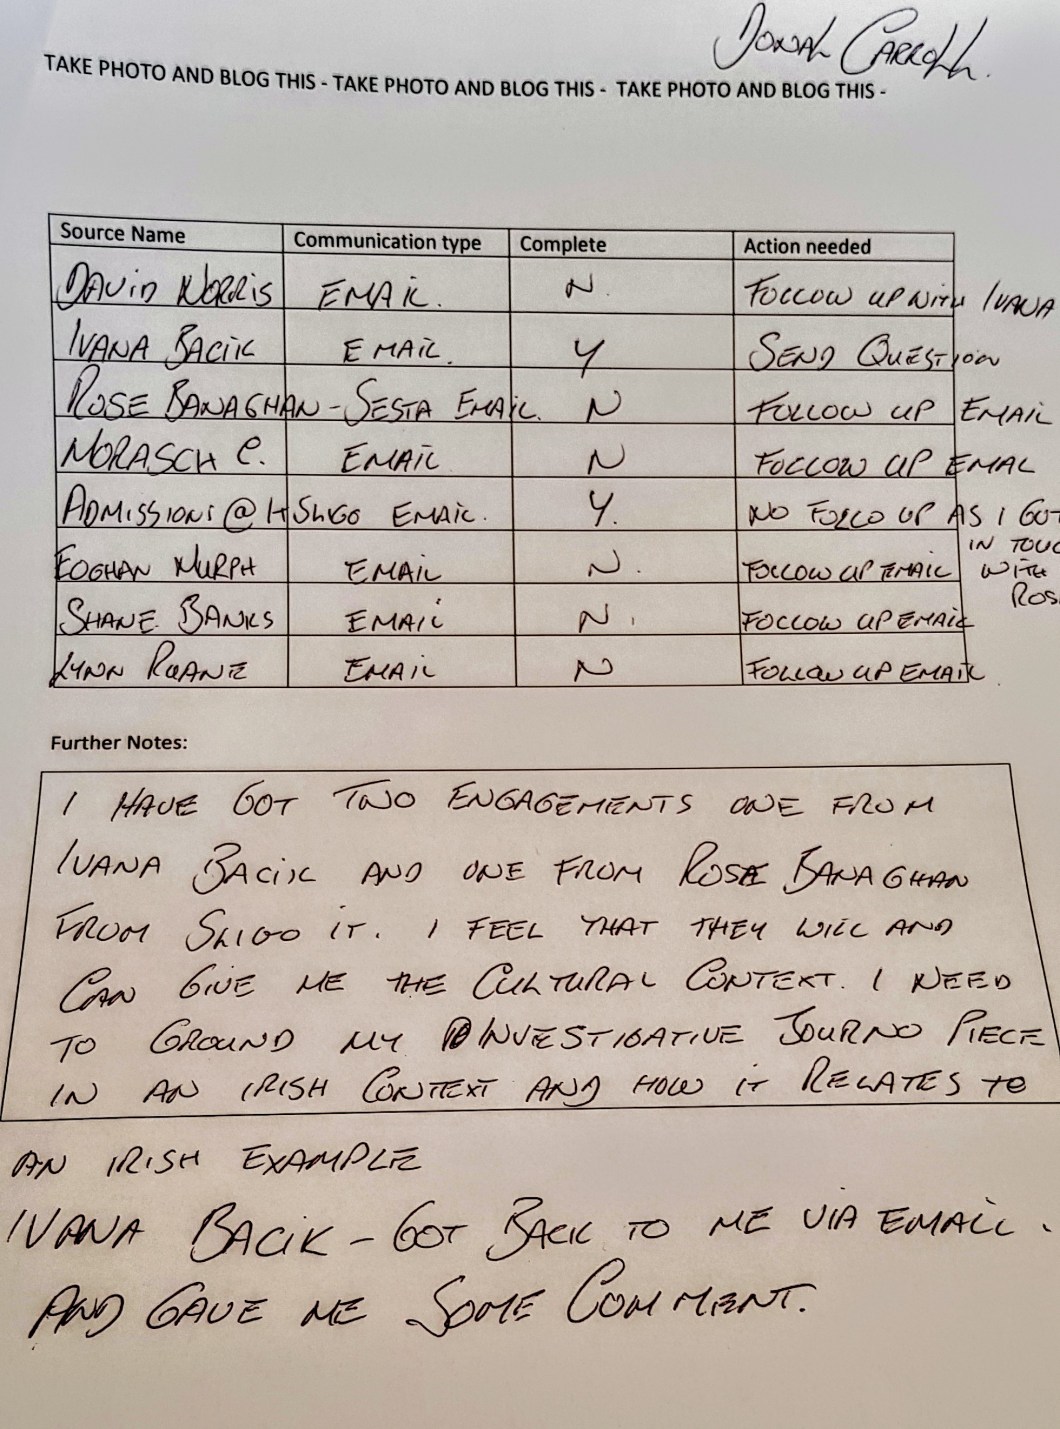 Donal Carroll.
TAKE PHOTO AND BLOG THIS - TAKE PHOTO AND BLOG THIS - TAKE PHOTO AND BLOG THIS -
Source Name Communication type Complete Action needed
DAVID NORRIS EMAIL. N. FOLLOW UP WITH IVANA
IVANA BACIK EMAIL. Y SEND QUESTION
ROSE BANAGHAN - SESTA EMAIL. N FOLLOW UP EMAIL
NORASCH C. EMAIL N FOLLOW UP EMAL
ADMISSIONS@ITSLIGO EMAIL. Y. NO FOLLO UP AS I GOT
IN TOUC
WITH
ROS
EOGHAN MURPH EMAIL N. FOLLOW UP EMAIL
SHANE BANKS EMAIL N. FOLLOW UP EMAIL
LYNN RUANE EMAIL N FOLLOW UP EMAIL.
Further Notes:
I HAVE GOT TWO ENGAGEMENTS ONE FROM
IVANA BACIK AND ONE FROM ROSE BANAGHAN
FROM SLIGO IT. I FEEL THAT THEY WILL AND
CAN GIVE ME THE CULTURAL CONTEXT. I NEED
TO GROUND MY INVESTIGATIVE JOURNO PIECE
IN AN IRISH CONTEXT AND HOW IT RELATES TO
AN IRISH EXAMPLE
IVANA BACIK - GOT BACK TO ME VIA EMAIL.
AND GAVE ME SOME COMMENT.